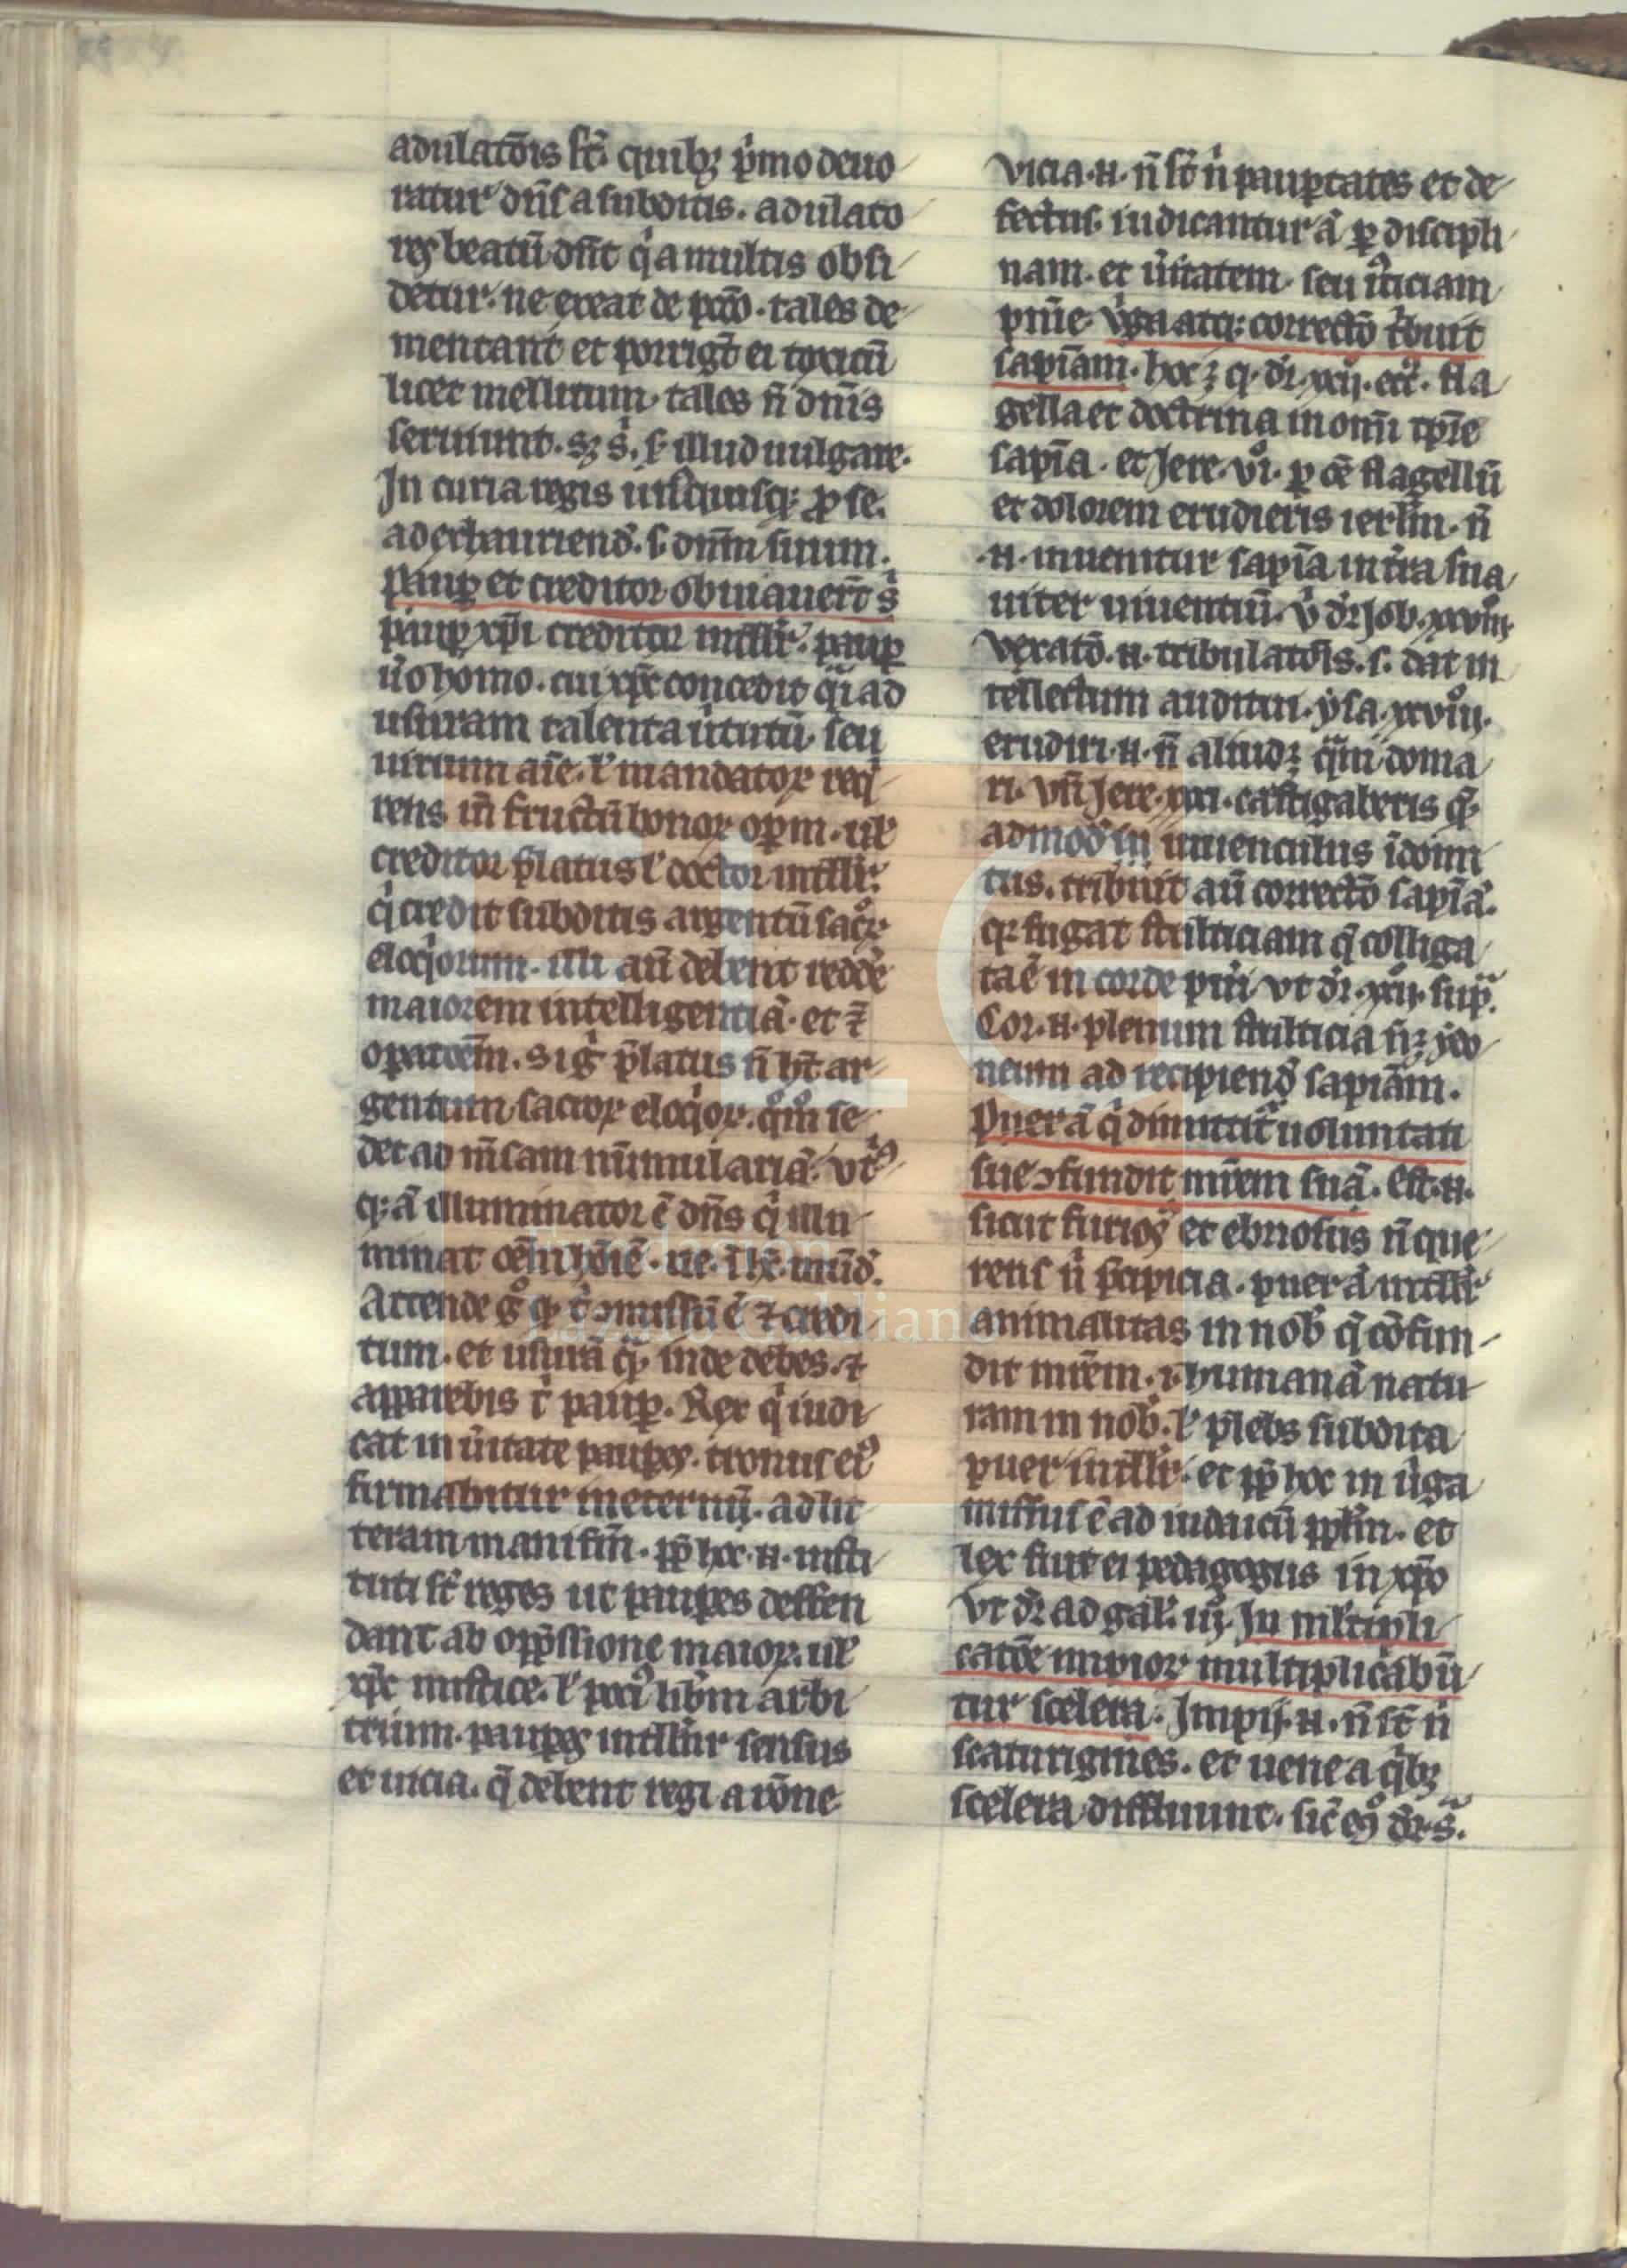 adulatōis st̄. quibꝫ p̓mo deuo
ratur dn̄s a subditis. adulato
res beatū dn̄t q̓ a multis obsi
detur. ne exeat de pctō. tales de
mentant et porrigt̄ ei toxicū
licet mellitum. tales n̄ dn̄is
seruiunt. sꝫ s̓. ẜ illud uulgare.
In curia regis unusquisqꝫ ꝓ se.
ad exhauriend̓. s. dn̄m suum.
Paup̱ et creditor obuiauert̄ s̓
paup̱ xp̄i creditor intllr̓. paup̱
u̓o homo. cui xp̄c concedit q̄i ad
usuram talenta u̓tutū. seu
uirium aīe. l̓ mandatoꝝ req̓
rens in̄ fructū bonoꝝ op̱m. ul̓
creditor p̄latus l̓ doctor intllr̓.
q̓ credit subditis argentū sacroꝝ
eloq̓orum. illi aū debent redde̓
maiorem intelligentiā. et ⁊
op̱atōem. Si g̓ p̄latus n̄ ht̄ ar
gentum sacroꝝ eloq̓oꝝ. qūo se
det ad m̄sam nūmulariā. vt̓
qꝫ ā illuminator ē dn̄s q̓ illu
minat oēm hoīē. ue. ī hc̄. mūd̓.
Attende g̊ qꝫ t̓ ɔmissū ē ⁊ credi
tum. et usurā q̄ inde debes. ⁊
apparebis t̓ paup̱. Rex q̓ iudi
cat in u̓itate paup̱es. tronus ei᷒
firmabitur in eternū. ad lit
teram manifm̄. pp̄ hoc. n. insti
tuti st̄ reges ut paup̱es deffen
dant ab opp̄ssione maioꝝ. ul̓
xp̄c mistice. l̓ poci᷒ libm̄ arbi
trium. paup̱es intllr̄ sensus
et uicia. q̄ debent regi a rōne
vicia. n. n̄ st̄ n̓ paup̱tates et de
fectus. iudicantur ā p̱ discipli
nam. et u̓itatem. seu iusticiam
pm̄e. Vi̓ga atqꝫ correctō t̓buit
sapiam̄. hoc ꝫ q. dr̓. xxij. ecc̄. fla
gella et doctrina in omī tp̄re
sapīa. et Jere. vi. p̱ oē flagellū
et dolorem erudieris ierl̄m. n̄
.n. inuenitur sapīa in tr̄a sua
uiter uiuentiū. v̓ dr̓ Job. xxviij.
Vexatō. n. tribulatōis. s. dat in
tellectum auditui. ysa. xxviij.
erudiri. n. n̄ aliud ꝫ qm̄ doma
ri. vn̄ Jere. xxxi. castigaberis qꝫ
admod̓ iuuenculus ī domi
tus. tribuit aū correctō sapīā.
qꝫ fugat stulticiam q̄ colliga
ta ē in corde pu̓i vt dr̓. xxij. sup̱.
Cor. n. plenum stulticia n̄ ꝫ ydo
neum ad recipiend̓ sapiām.
Puer ā q̓ dimittit᷒ uoluntati
sue ɔfundit mr̄em suā. est. n.
sicut furios᷒ et ebriosus n̄ que
rens n̓ p̱cipicia. puer ā intllr̓
animalitas in nob̓ q̄ cōfun
dit mr̄em. i. humanā natu
ram in nob̓. l̓ plebs subdita
puer intllr̓. et pp̄ hoc in u̓ga
missus ē ad iudaicū pplm̄. et
lex fuit ei pedagogus in xp̄o
vt dr̓ ad gal̓. iij. In ml̓tipli
catōe impioꝝ multiplicabū
tur scelera. Impij. n. n̄ st̄ n̓
scaturigines. et uene a q̓bꝫ
scelera diffluunt. sic̄ eo᷒ dr̓. s̄.